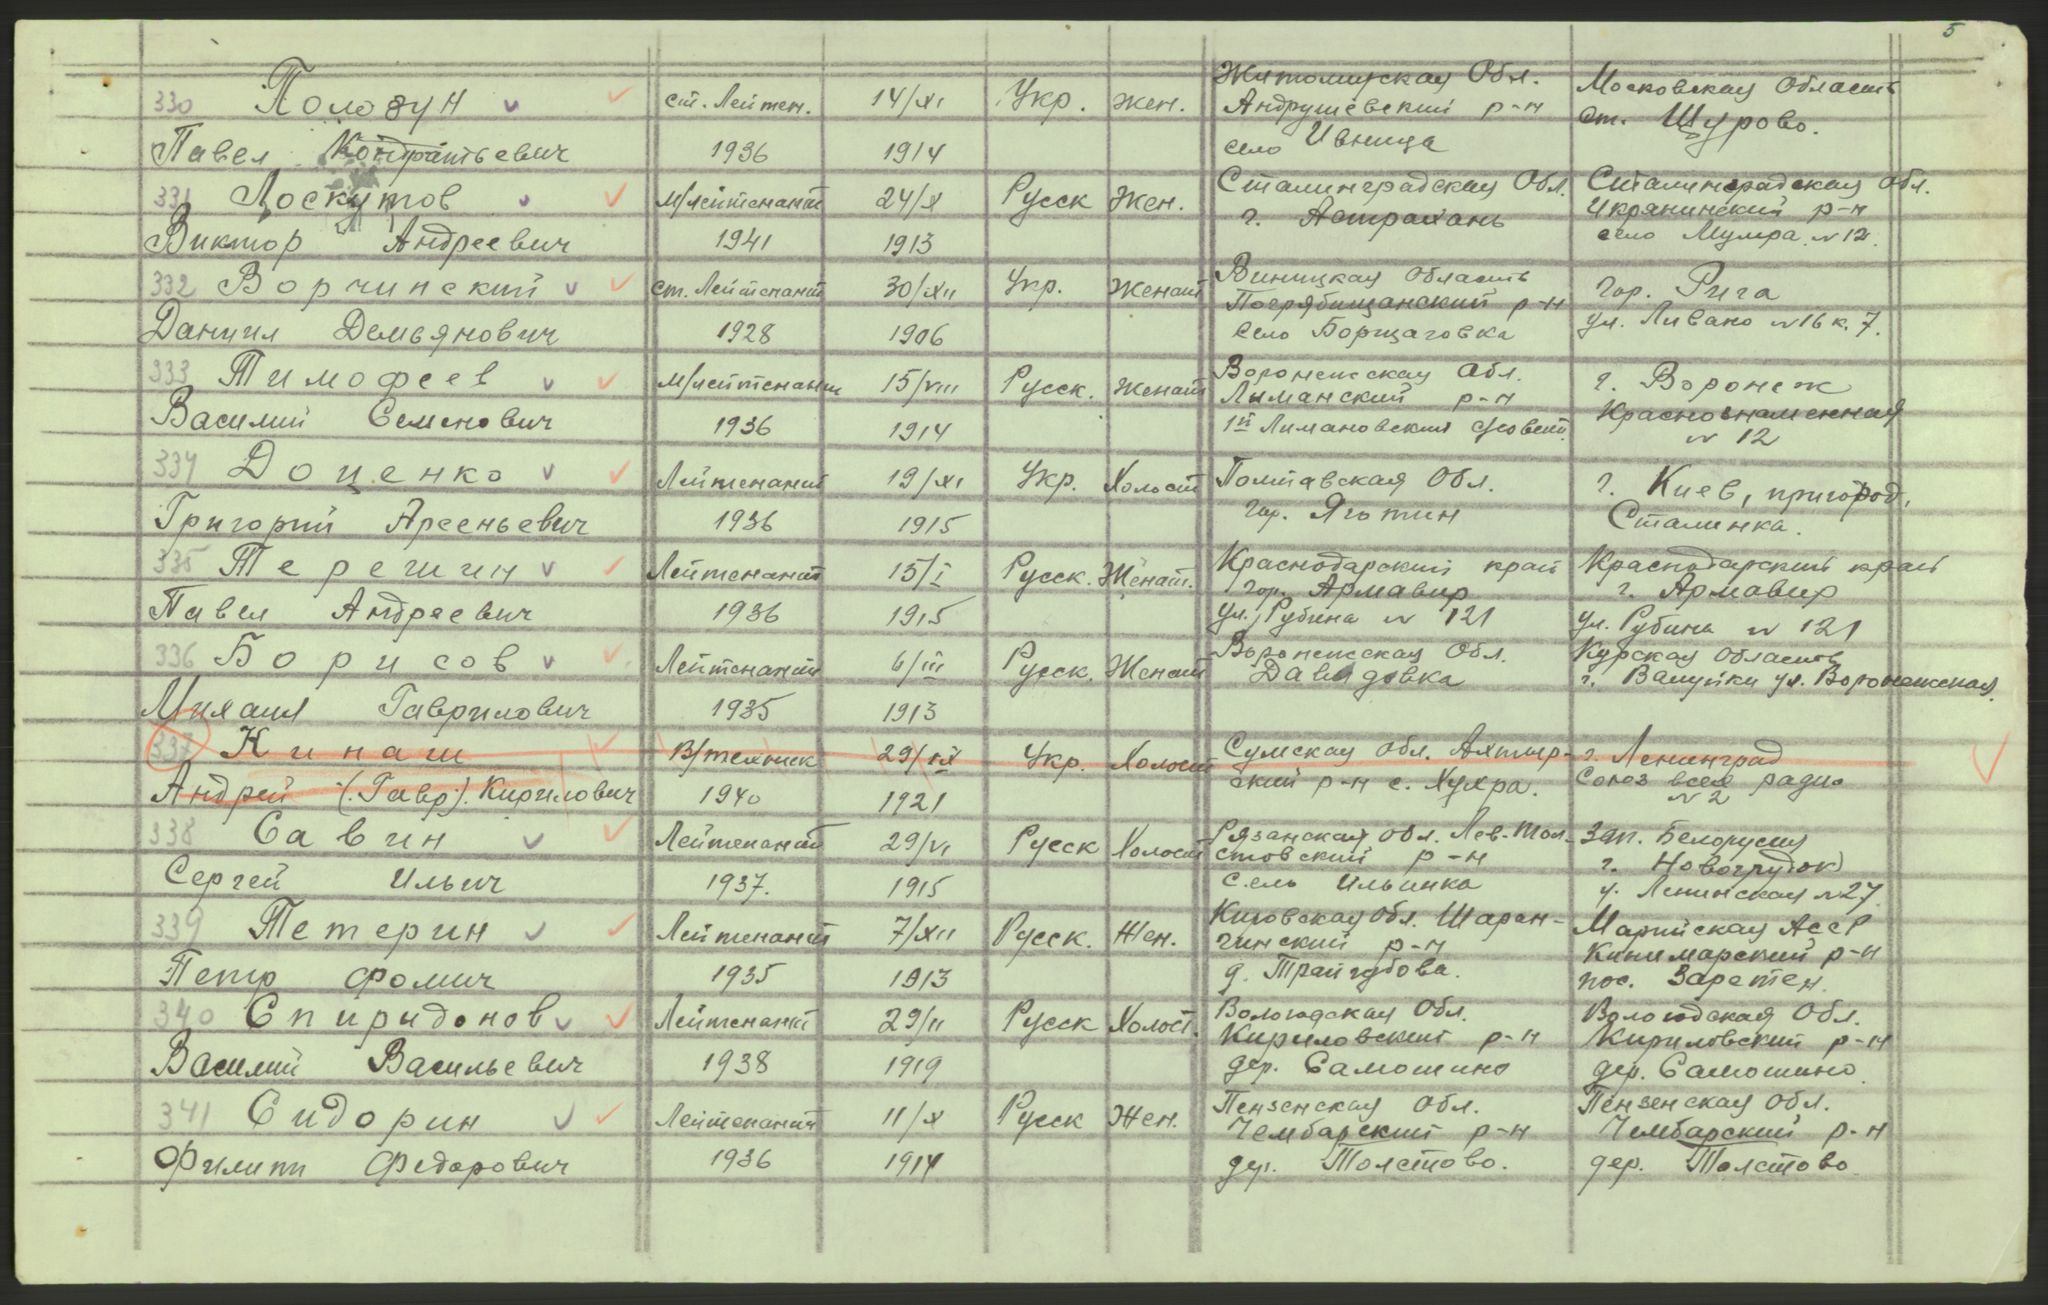 5
330 Полозун ст. Лейтен. 14/XI Укр. Жен. Житомирская Обл. Московская Область
Андрушевский р-н ст. Щурово.
Павел Кондратьевич 1936 1914 село Ивница
331 Лоскутов М/лейтенант 24/X Русск Жен. Сталинградская Обл. Сталинградская Обл.
г. Астрахань Икрянинский р-н
Виктор Андреевич 1941 1913 село Мумра N 12.
332 Ворчинский ст. Лейтенант 30/XII Укр. Женат Виницкая Область гор. Рига
Погрябищанский р-н
Даниил Демьянович 1928 1906 село Борщаговка ул. Ливано N 16 к. 7.
333 Тимофеев М/лейтенант 15/VIII Русск. Женат Воронежская Обл. г. Воронеж
Лиманский р-н Краснознаменная
Василий Семенович 1936 1914 1й Лимановский с/совет. N 12
334 Доценко Лейтенант 19/XI Укр. Холост Полтавская Обл. г. Киев, пригород,
Григорий Арсеньевич 1936 1915 гор. Яготин Сталинка.
335 Терешин Лейтенант 15/I Русск. Женат. Краснодарский край Краснодарский край
гор. Армавир г. Армавир
Павел Андреевич 1936 1915 ул. Рубина N 121 ул. Рубина N 121
336 Борисов Лейтенант 6/III Русск. Женат Воронежская Обл. Курская Область
Давидовка г. Валуйки ул. Воронежская.
Михаил Гаврилович 1935 1913
337 Кинаш В/техник 29/IX Укр. Холост Сумская обл. Ахтыр- г. Ленинград
ский р-н с. Хухра. Союз всея радио
Андрей (Гавр). Кирилович 1940 1921 N 2
338 Савин Лейтенант 29/VI Русск Холост Рязанская обл. Лев-Тол- Зап. Белорусия
стовский р-н г. Новогрудок
Сергей Ильич 1937. 1915 село Ильинка у. Ленинская N 27.
339 Тетерин Лейтенант 7/XII Русск. Жен. Кировская обл. Шаран- Марийская АССР
гинский р-н Кинимарский р-н
Петр Фомич 1935 1913 д. Трайгубова. пос. Заретен.
340 Спиридонов Лейтенант 29/II Русск Холост. Вологодская Обл. Вологодская Обл.
Кириловский р-н Кириловский р-н
Василий Васильевич 1938 1919 дер. Самошино дер. Самошино.
341 Сидорин Лейтенант 11/X Русск Жен. Пензенская Обл. Пензенская Обл.
Чембарский р-н Чембарский р-н
Филипп Федорович 1936 1914 дер. Толстово. дер. Толстово.